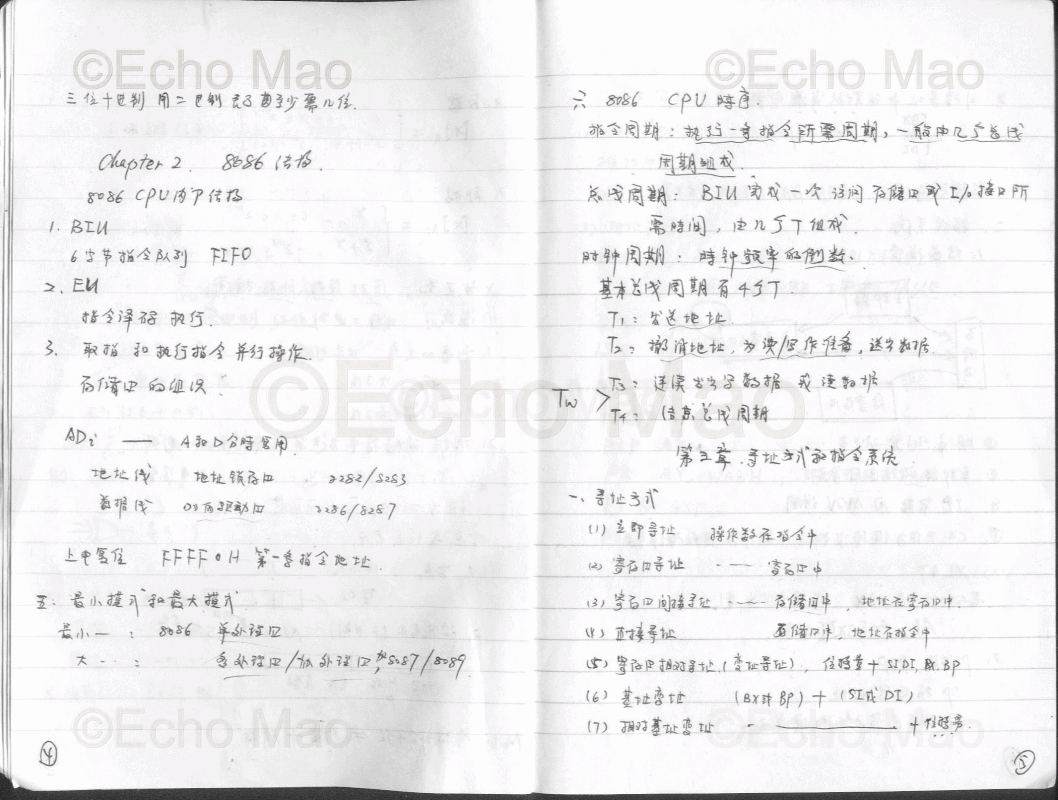 ©Echo Mao
三位十进制 用二进制表示 至少需几位.
Chapter 2. 8086 结构.
8086 CPU 内部结构
1. BIU
6字节指令队列 FIFO
2. EU
指令译码 执行.
3. 取指 和 执行指令 并行操作.
存储器的组织.
©Echo Mao
ADi —— A和D分时复用
地址线 地址锁存器 8282/8283
数据线 双向驱动器 8286/8287
上电复位 FFFF0H 第一条指令地址.
五: 最小模式和最大模式
最小— : 8086 单处理器
大 -- : 多处理器/协处理器 8087/8089
©Echo Mao
4
©Echo Mao
六 8086 CPU 时序.
指令周期: 执行一条指令所需周期, 一般由几个总线
周期组成.
总线周期: BIU 完成一次访问存储器或 I/O 接口所
需时间, 由几个T组成.
时钟周期: 时钟频率的倒数.
基本总线周期有4个T
T1: 发送地址.
T2: 撤消地址, 为读/写作准备, 送出数据
T3: 连续送出写数据 或 读数据
Tw >
T4: 结束总线周期
第三章. 寻址方式和指令系统.
一、寻址方式
(1) 立即寻址 操作数在指令中
(2) 寄存器寻址 -—— 寄存器中
(3) 寄存器间接寻址 —— 存储器中, 地址在寄存器中.
(4) 直接寻址 存储器中, 地址在指令中
(5) 寄存器相对寻址.(变址寻址), 位移量 + SI,DI,BX,BP
(6) 基址变址 (BX或BP) + (SI或DI)
(7) 相对基址变址 —————— + 位移量.
©Echo Mao
5